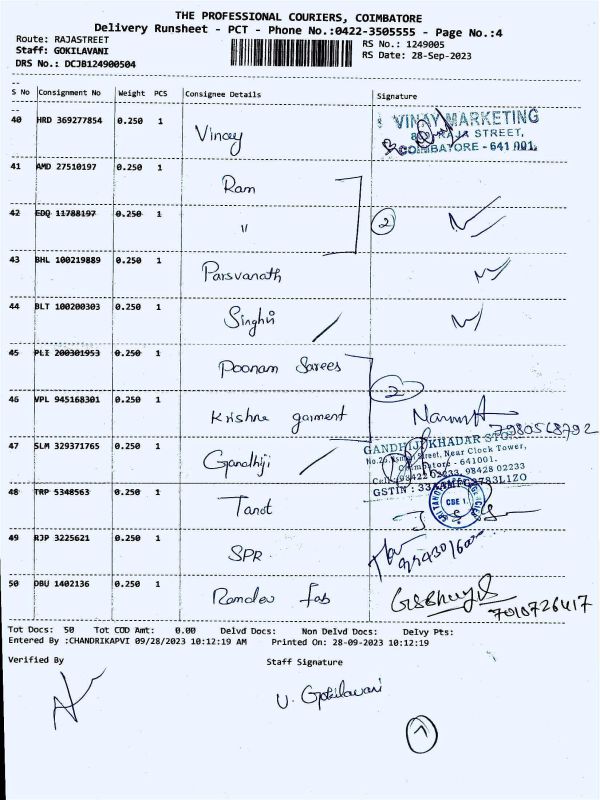 THE PROFESSIONAL COURIERS, COIMBATORE
Delivery Runsheet - PCT - Phone No.:0422-3505555 - Page No.:4
Route: RAJASTREET
RS No.: 1249005
Staff: GOKILAVANI
RS Date: 28-Sep-2023
DRS No.: DCJB124900504
S No Consignment No Weight PCS Consignee Details Signature
40 HRD 369277854 0.250 1 Vinay
VINAY MARKETING
RAJA STREET,
COIMBATORE - 641 001.
41 AMD 27510197 0.250 1 Ram
42 EDQ 11788197 0.250 1 "
2
43 BHL 100219889 0.250 1 Parsvanath
44 BLT 100200303 0.250 1 Singhvi
45 PLI 200301953 0.250 1 Poonam Sarees
2
46 VPL 945168301 0.250 1 Krishna garment
7980568792
47 SLM 329371765 0.250 1 Gandhiji
GANDHIJI KHADAR STO
Street, Near Clock Tower,
Coimbatore - 641001.
Cell: 98422 02233, 98428 02233
GSTIN :
48 TRP 5348563 0.250 1 Tanot
CBE 1.
49 RJP 3225621 0.250 1 SPR
50 DBU 1402136 0.250 1 Ramdev Fab
7010726417
Tot Docs: 50 Tot COD Amt: 0.00 Delvd Docs: Non Delvd Docs: Delvy Pts:
Entered By :CHANDRIKAPVI 09/28/2023 10:12:19 AM Printed On: 28-09-2023 10:12:19
Verified By Staff Signature
V. Gokilavani